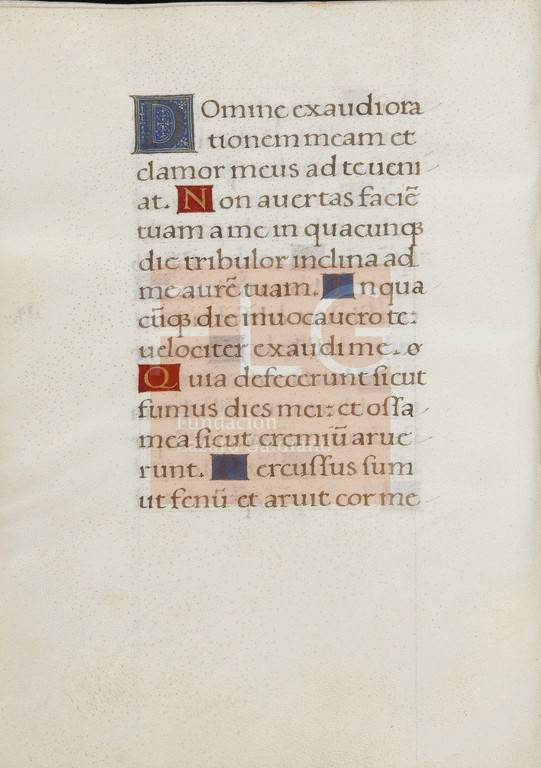 DOmine exaudi ora
tionem meam et
clamor meus ad te ueni
at. Non auertas faciē
tuam a me in quacunqꝫ
die tribulor inclina ad
me aurē tuam. In qua
cūqꝫ die inuocauero te:
uelociter exaudi me.
Quia defecerunt ſicut
fumus dies mei: et oſſa
mea ſicut cremiū arue
runt. Percuſſus ſum
ut fenū et aruit cor me
FLG
Fundación
Lázaro Galdiano